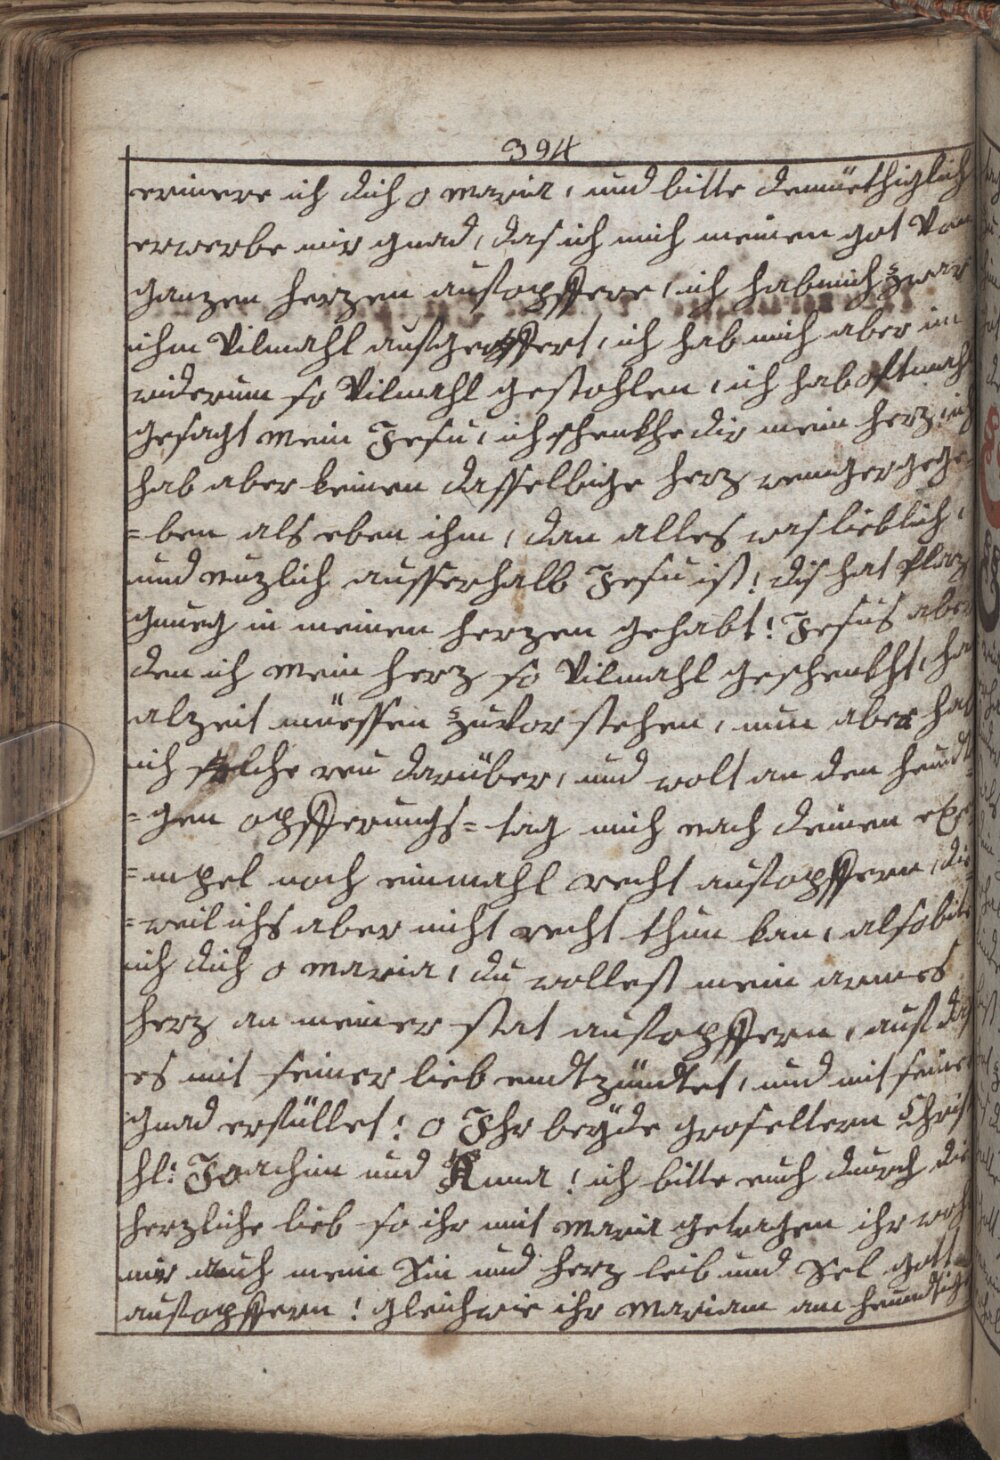 394
erinere ich dich o maria, und bitte demüethiglich
erwerbe mir gnad, das ich mich meinen got von
ganzen herzen aufopffere, ich hab mich zwar
ihm vilmahl aufgeopffert, ich hab mich aber im
widerum so vilmahl gestohlen, ich hab oftmahl
gesagt mein Jesu, ich schenkhe dir mein herz, ich
hab aber keinen dasselbige herz weniger gege
=ben als eben ihm, dan alles was lieblich,
und nuzlich ausserhalb Jesu ist! dis hat plaz
gnueg in meinen herzen gehabt! Jesus aber
den ich mein herz so vilmahl geschenkht, hat
alzeit müessen zuvor stehen, nun aber hab
ich solche reu darüber, und wolt an den heundti
=gen opfferungs=tag mich nach deinen exe
=mpel noch einmahl recht aufopffern, die
=weil ichs aber nicht recht thun kan, also bite
ich dich o maria, du wollest mein armes
herz an meiner stat aufopffern, auf das
es mit seiner lieb endtzündtet, und mit seiner
gnad erfüllet! o Ihr beÿde groseltern Christi
hl: Joachim und Anna! ich bitte euch durch die
herzliche lieb so ihr mit maria getragen ihr wolt
mir auch mein Sin und herz leib und Sel gott
aufopffern! gleichwie ihr mariam am heundtigen